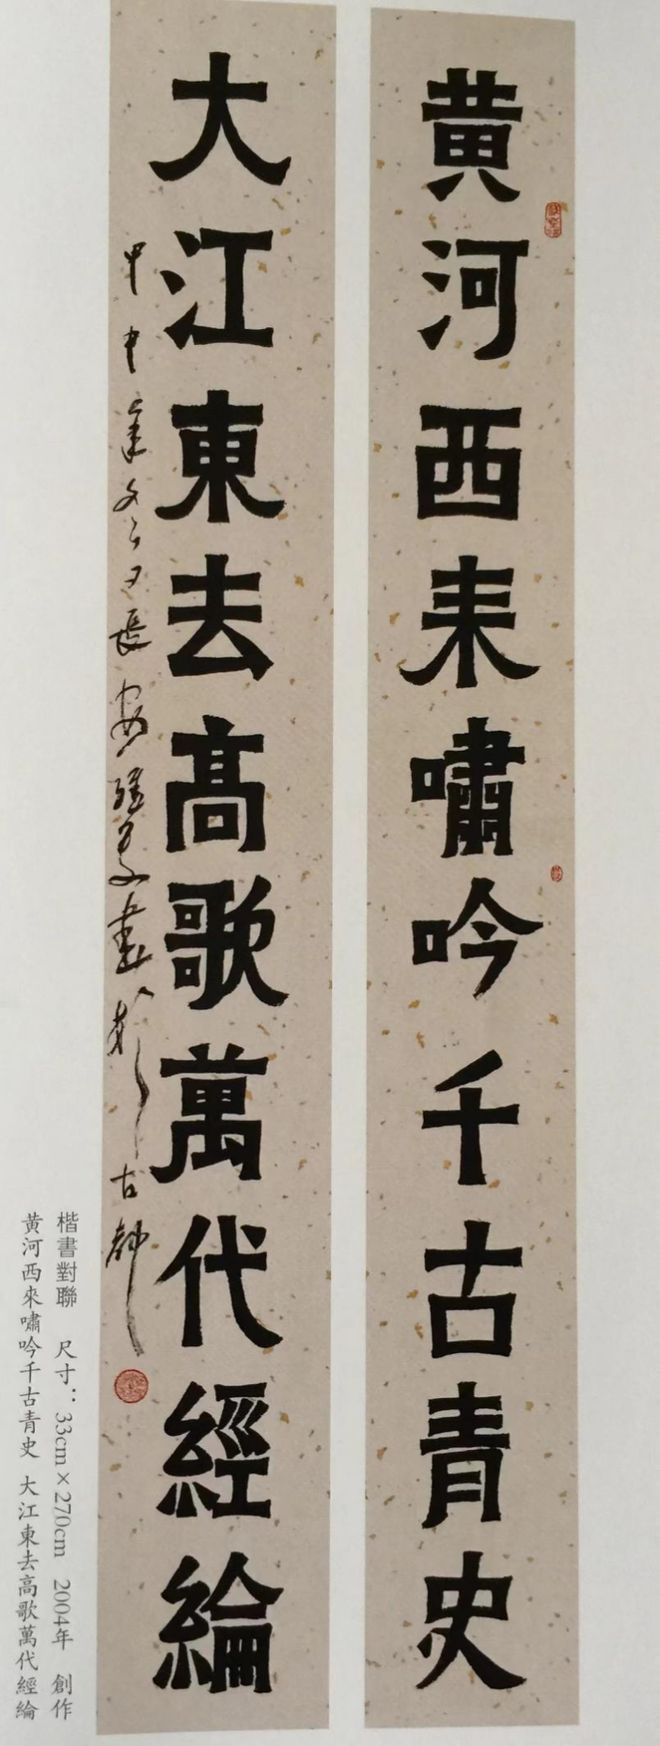 黄河西来嘯吟千古青史
大江東去高歌萬代經綸
甲申年 長安 書於古都
楷書對聯 尺寸：33cm×270cm 2004年 創作
黃河西來嘯吟千古青史 大江東去高歌萬代經綸